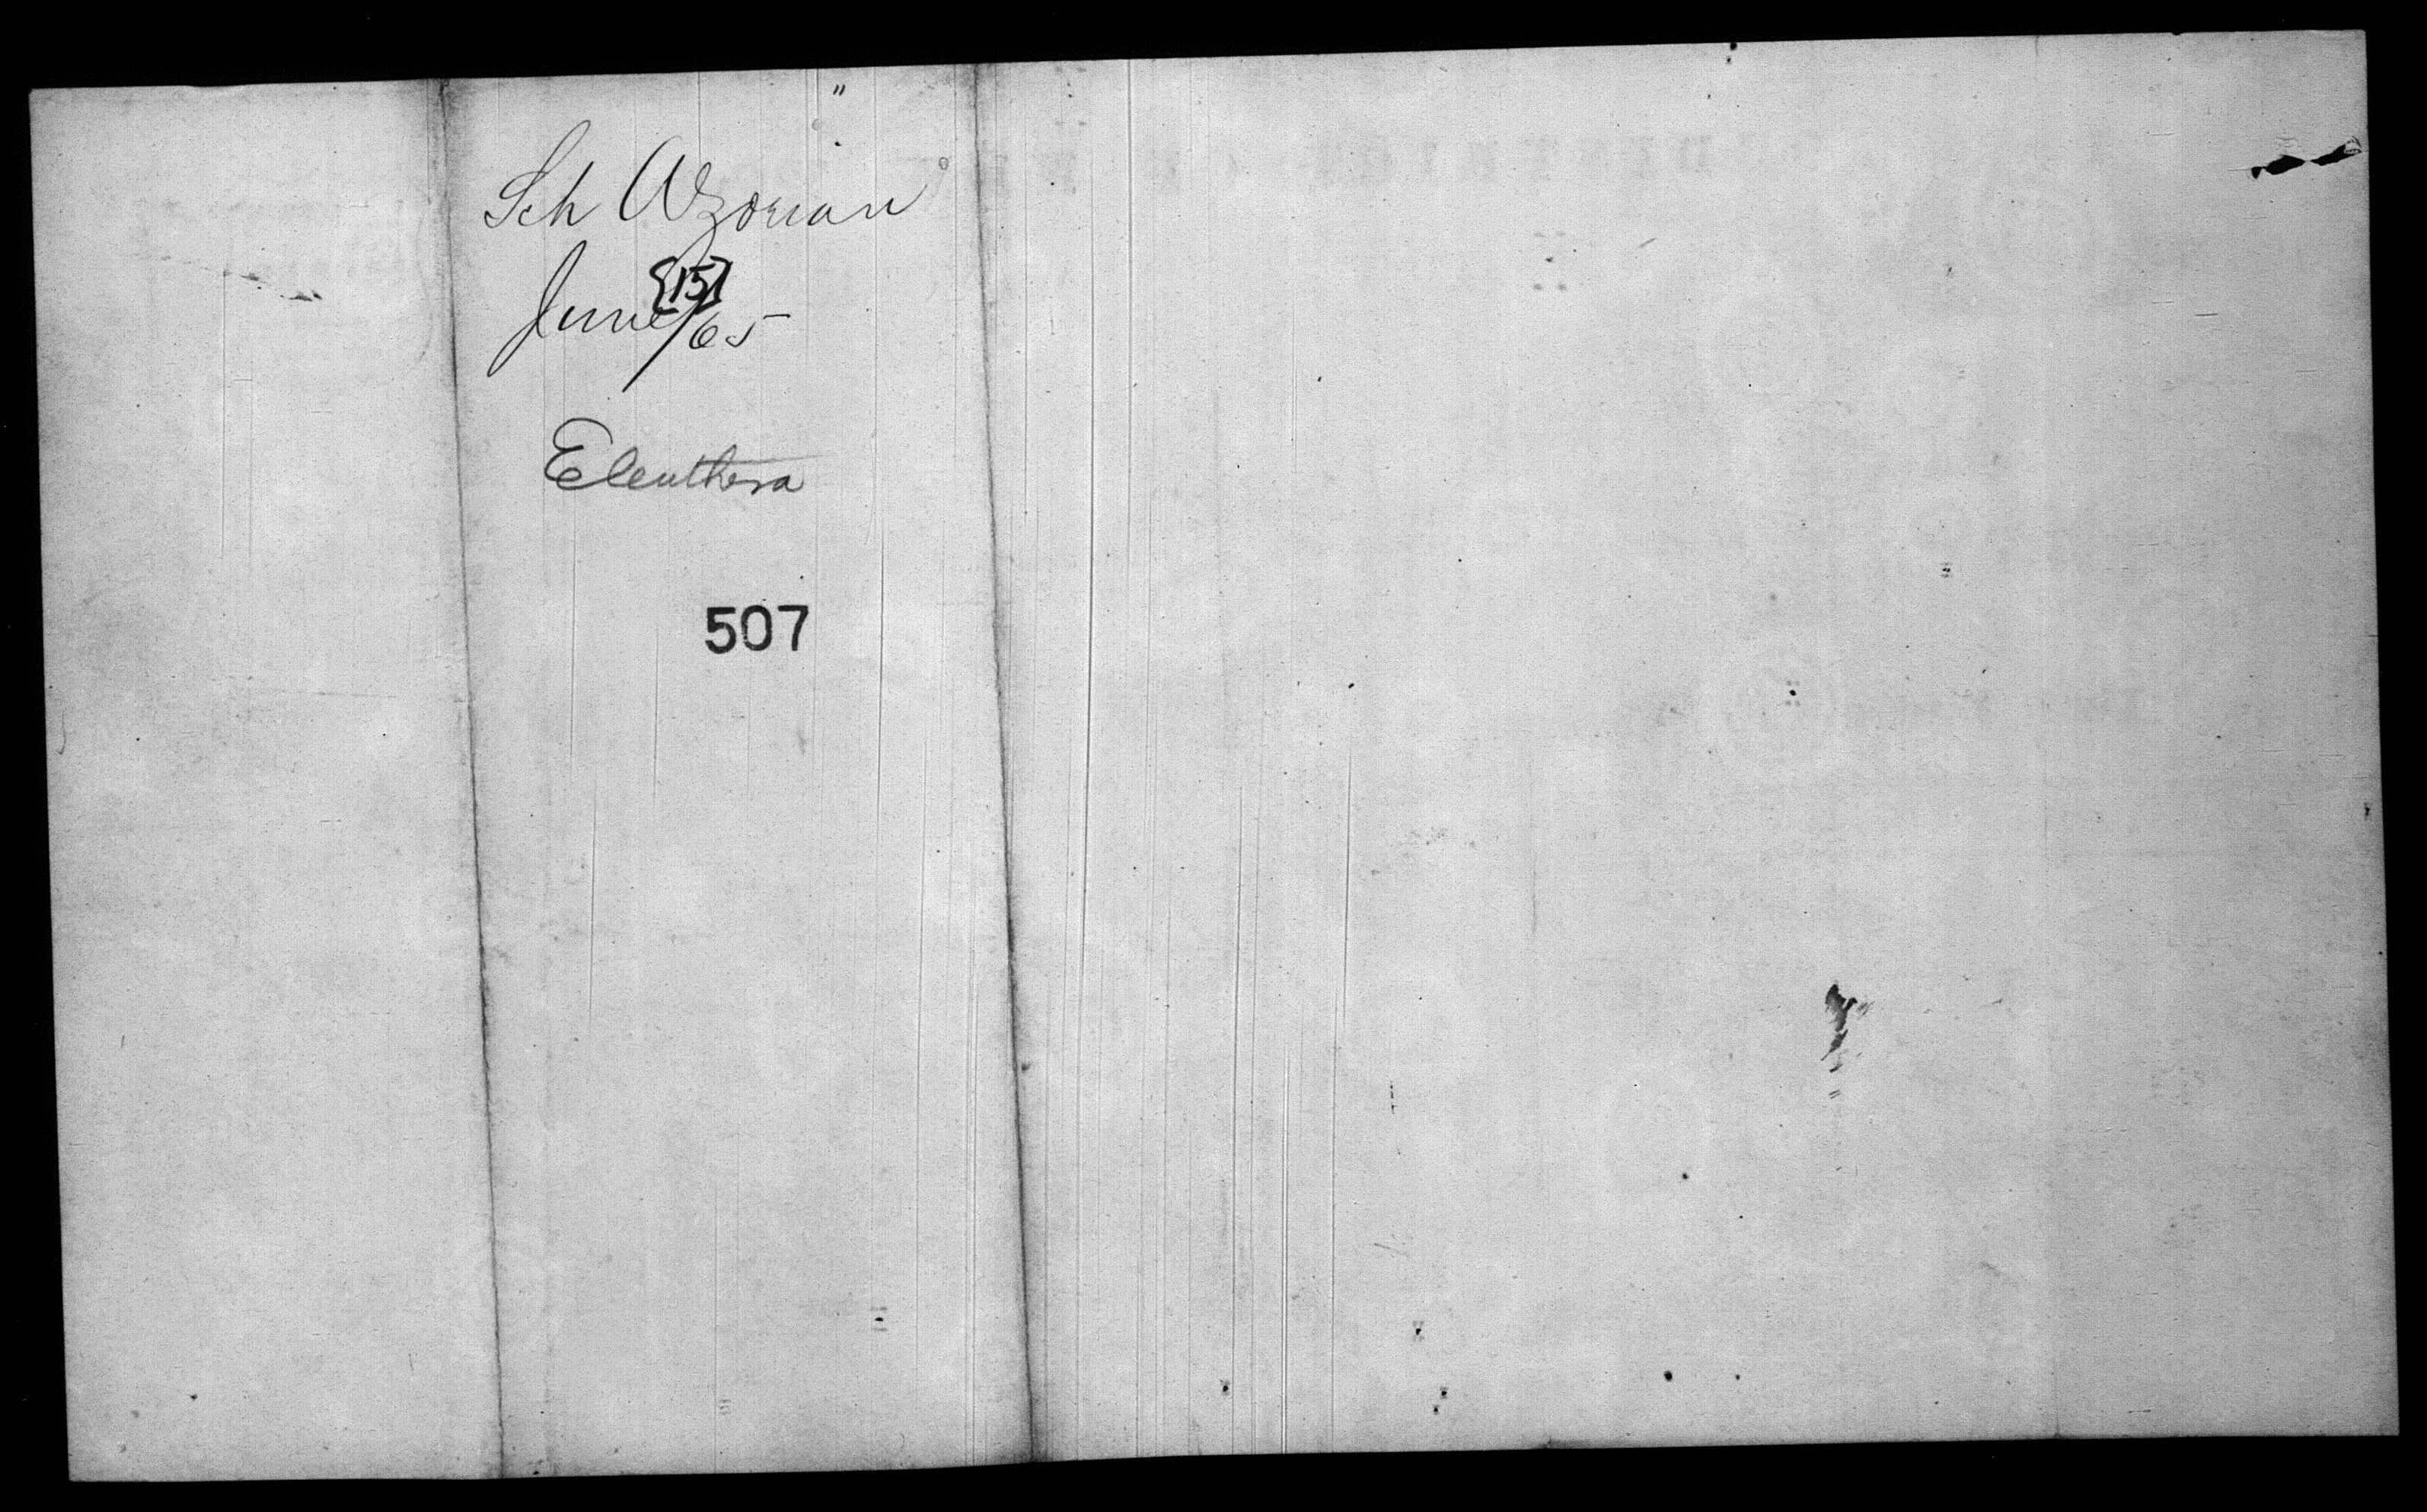 Sch Azorian
[15]
June/65
Eleuthera
507